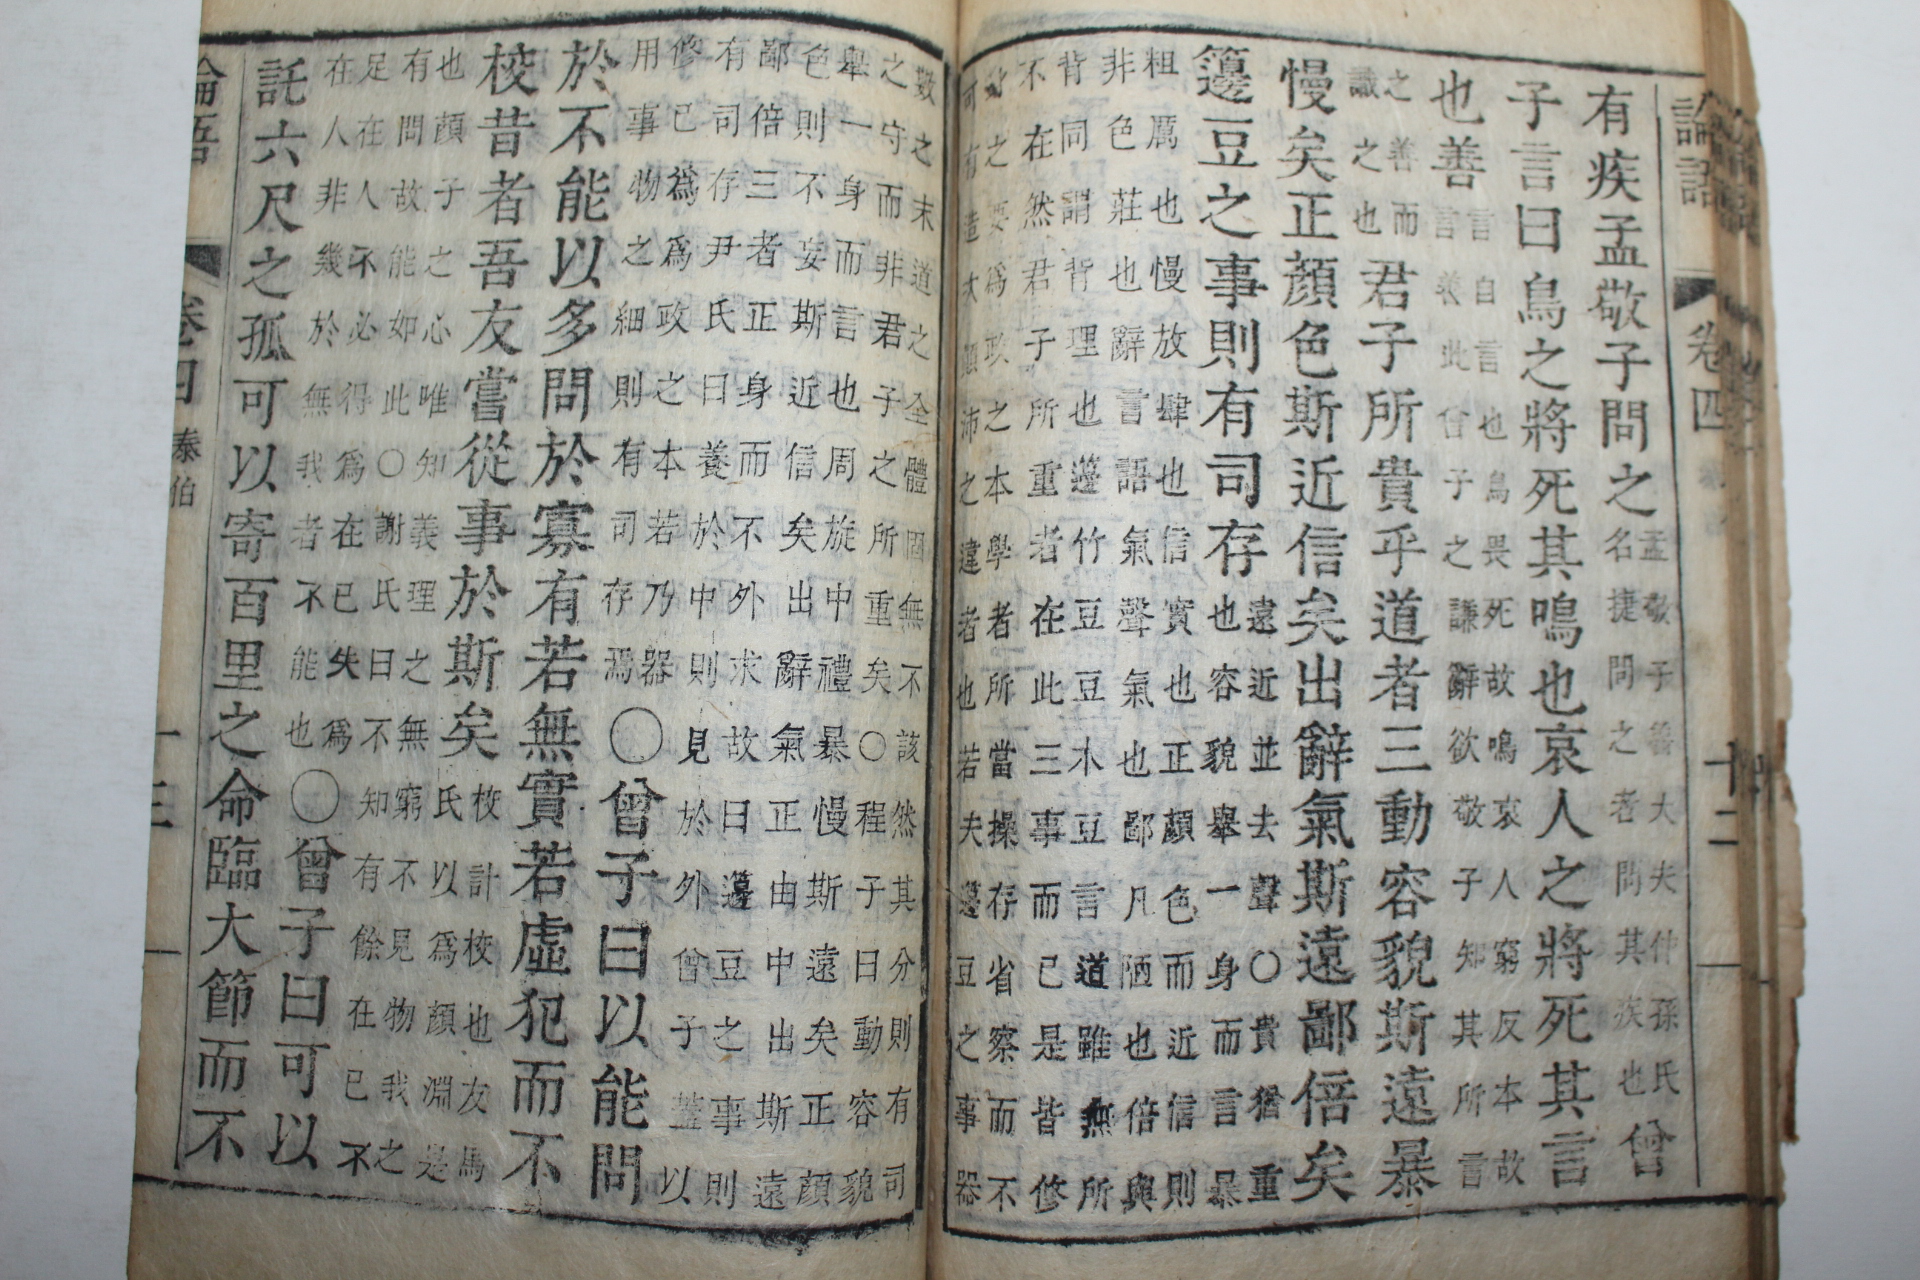 論語 卷四 十二
有疾孟敬子問之
孟敬子魯大夫仲孫氏
名捷問之者問其疾也
曾
子言曰鳥之將死其鳴也哀人之將死其言
也善
言自言也鳥畏死故鳴哀人窮反本故
言善此曾子之謙辭欲敬子知其所言
之善而
識之也
君子所貴乎道者三動容貌斯遠暴
慢矣正顏色斯近信矣出辭氣斯遠鄙倍矣
籩豆之事則有司存
遠近並去聲○貴猶重
也容貌舉一身而言暴
粗厲也慢放肆也信實也正顏色而近信則
非色莊也辭言語氣聲氣也鄙凡陋也倍與
背同謂背理也籩竹豆豆木豆言道雖無所
不在然君子所重者在此三事而已是皆修
身之要爲政之本學者所當操存省察而不
可有造次顚沛之違者也若夫籩豆之事器
數之末道之全體固無不該然其分則有司
之守而非君子之所重矣○程子曰動容貌
舉一身而言也周旋中禮暴慢斯遠矣正顏
色則不妄斯近信矣出辭氣正由中出斯遠
鄙倍三者正身而不外求故曰籩豆之事則
有司存尹氏曰養於中則見於外曾子蓋以
修己爲爲政之本若乃器
用事物之細則有司存焉
○曾子曰以能問
於不能以多問於寡有若無實若虛犯而不
校昔者吾友嘗從事於斯矣
校計校也友馬
氏以爲顏淵是
也顏子之心唯知義理之無窮不見物我之
有問故能如此○謝氏曰不知有餘在己不
足在人不必得爲在己失爲
在人非幾於無我者不能也
○曾子曰可以
託六尺之孤可以寄百里之命臨大節而不
論語 卷四 泰伯 十三